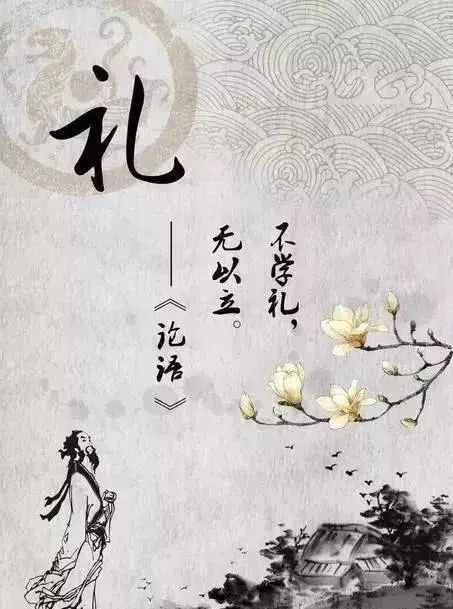 礼
不学礼，
无以立。
——《论语》